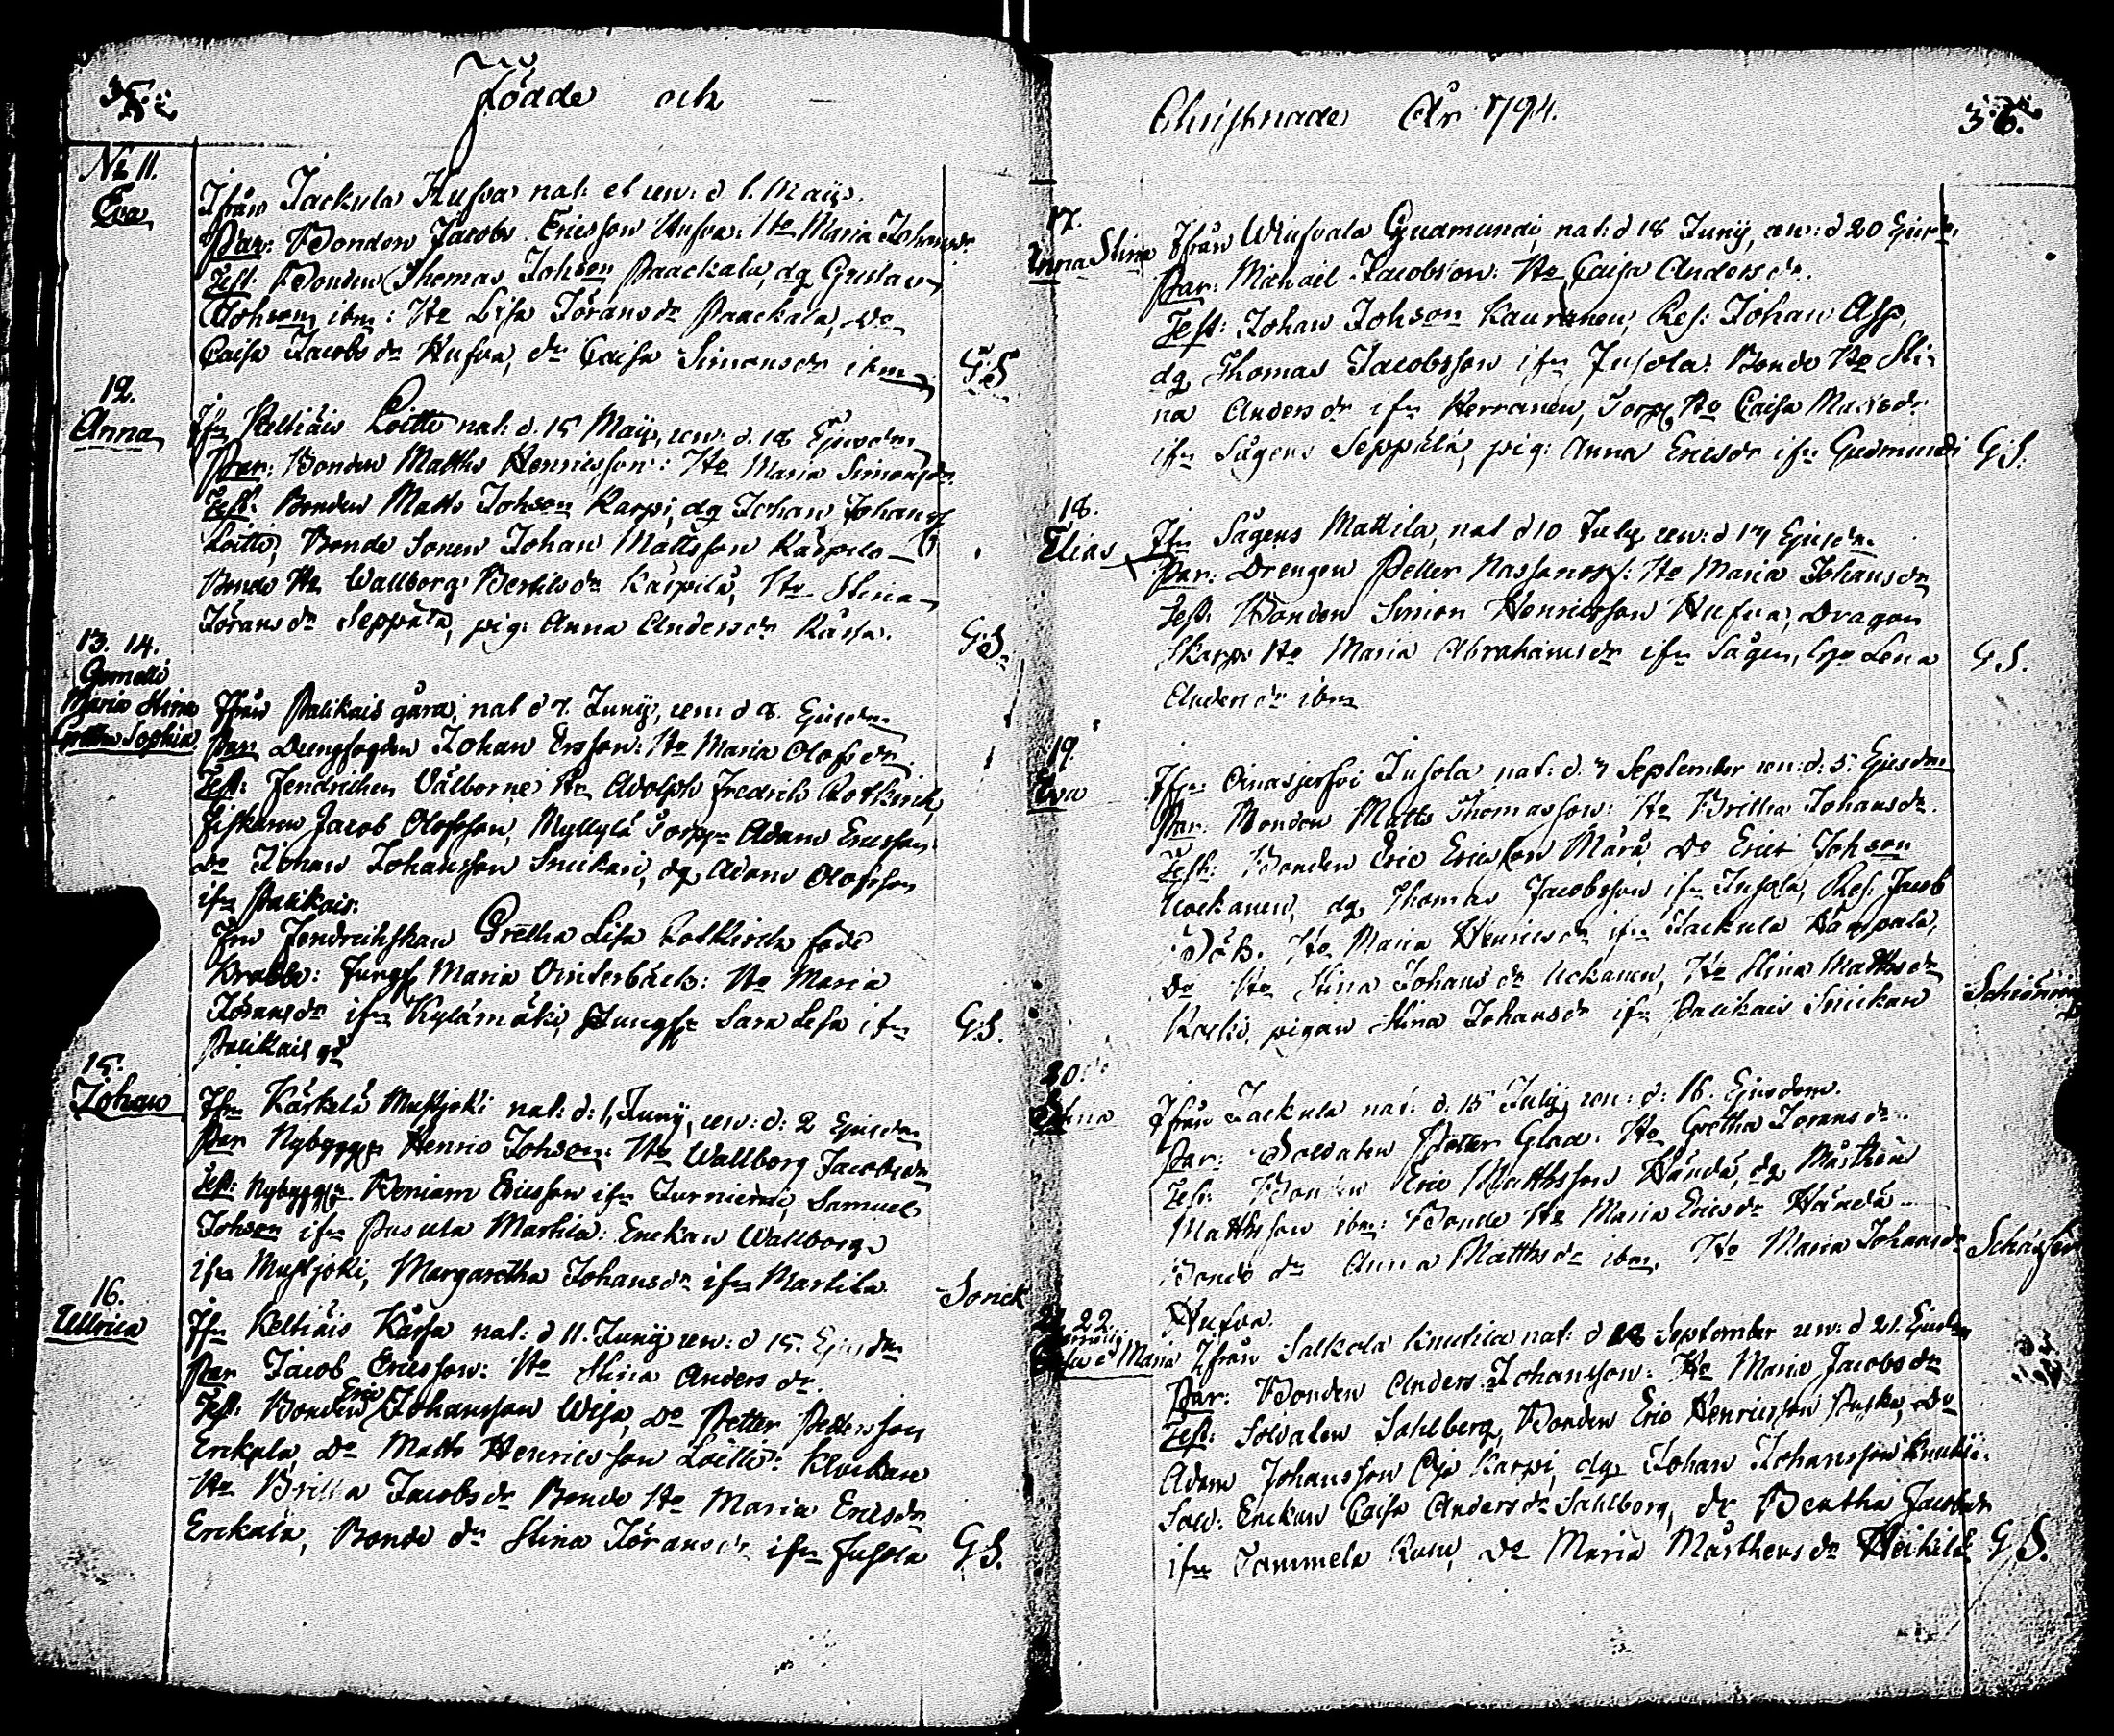 35.
Födde och
No 11.
Eva
Ifrån Jackula Hufva nat: et ren: d 1. Maij.
Par: Bonden Jacob Ericsson Hufva: Ho Maria Johansdr
Test: Bonden Thomas Johson Paackala, dg Gustav
Johson ibm: Ho Lisa Jöransdr Paackala, Do
Caisa Jacobsdr Hufva, dr Caisa Simonsdr ibm
G:S
12.
Anna
Ifrn Keltiäis Loitte nat: d. 15 Maij, ren: d. 18 Ejusdm
Par: Bonden Matths Henricsson: Ho Maria Simonsdr.
Test: Bonden Matts Johson Karpi, dg Johan Johanss
Loitte, Bonde Sonen Johan Mattsson Käspilä
Bonde Ho Wallborg Bertilsdr Käspilä, Ho Stina
Jöransdr Seppälä, pig: Anna Andersdr Kässä.
G:S.
13. 14.
Gemelli
Maria Stina
Gretha Sophia
Ifrån Palikais gård, nat d 7. Junij, ren: d 8. Ejusdm
Par Drengfogden Johan Ersson: Ho Maria Olofsdr.
Test: Fendrichen Välborne Hr Adolph Fredrich Rotkirch,
Fiskaren Jacob Olofsson, Myllylä Torpr Adam Ericsson
do Johan Johansson Snickari, dg Adam Olofsson
ifrn Palikais.
Fru Fendrichskan Gretha Lisa Rotkirch född
Krabbe: Jungf Maria Vinterbäck: Ho Maria
Jöransdr ifrn Kylämäki, Jungfr Sara Lisa ifrn
Palikais gd
G:S.
15.
Johan
Ifrn Kärkelä Mustjoki nat: d: 1, Junij, ren: d: 2 Ejusdm
Par Nybyggr Henric Johson: Ho Wallborg Jacobsdr
Test: Nybyggr Beniam Ericsson ifrn Jurniemi, Samuel
Johson ifrn Pasula Martila: Enckan Wallborg
ifrn Mustjoki, Margaretha Johansdr ifrn Martila
Sonick
16.
Ullrica
Ifrn Keltiäis Kässä nat: d 11. Junij ren: d 15. Ejusdm
Par Jacob Ericsson: Ho Stina Andersdr.
Test: Bonden Eric Johansson Wisa, Do Petter Pettersson
Erickala, Do Matts Henricsson Loitte: Klockare
Ho Britta Jacobsdr Bonde Ho Maria Ericsdr
Erickala, Bonde dr Stina Jöransdr ifrn Jusola
G:S.
Christnade År 1794.
36.
17.
Anna Stina
Ifrån Wiusvala Gudmundi, nat: d 18 Junij, ren: d 20 Ejusd.
Par: Michail Jacobson: Ho Caisa Andersdr.
Test: Johan Johson Kauranen, Ref: Johan Asp,
dg Thomas Jacobsson ifrn Jusola: Bonde Ho Sti-
na Andersdr ifrn Herranen, Torp. Ho Caisa Mattsdr
ifrn Sågens Seppälä, pig: Anna Ericsdr ifrn Gudmundi
G:S.
18.
Elias
Ifrn Sågens Mattila, nat d 10 July ren: d 17 Ejusdm
Par: Drengen Petter Nassanoff: Ho Maria Johansdr
Test: Bonden Simon Henricsson Hufva, Dragon
Skarp: Ho Maria Abrahamsdr ifrn Sågen, Lena
Andersdr ibm
G:S.
19.
Eva
Ifrn Oinasjerfvi Jusola nat: d. 7 September ren: d: 5: Ejusdm
Par: Bonden Matts Thomasson: Ho Britha Johansdr.
Test: Bonden Eric Ericsson Märä, Do Erict Johson
Uockanen, dg Thomas Jacobsson ifrn Jusola, Ref: Jacob
Ho Maria Henricsdr ifrn Jackula
Do Ho Stina Johansdr Uckanen, Ho Stina Matthsdr
Koski, pigan Stina Johansdr ifrn Palikais Snickari
20.
Stina
Ifrån Jackula nat: d. 15 July, ren: d: 16. Ejusdem.
Par: Soldaten Peter Glad: Ho Gretha Joransdr.
Test: Bonden Eric Matthsson Händä, dg Mårthen
Matthsson ibm: Bonde Ho Maria Ericsdr Händä
Bonde dr Anna Matthsdr ibm. Ho Maria Johansdr
Hufva.
21. 22.
Gemelli
Caisa et Maria
Ifrån Salkola Knutila nat: d 18 September ren: d 21. Ejusdm
Par: Bonden Anders Johansson: Ho Maria Jacobsdr
Test: Soldaten Sahlberg, Bonden Eric Henricsson Puska, Do
Adam Johansson Ojo Karpi, dg Johan Johansson Knuti:
Sold: Enckan Caisa Andersdr Sahlborg, dr Beatha Jacobsdr
ifrn Tammela Kusu, Do Maria Mårthensdr Heikilä
G S.